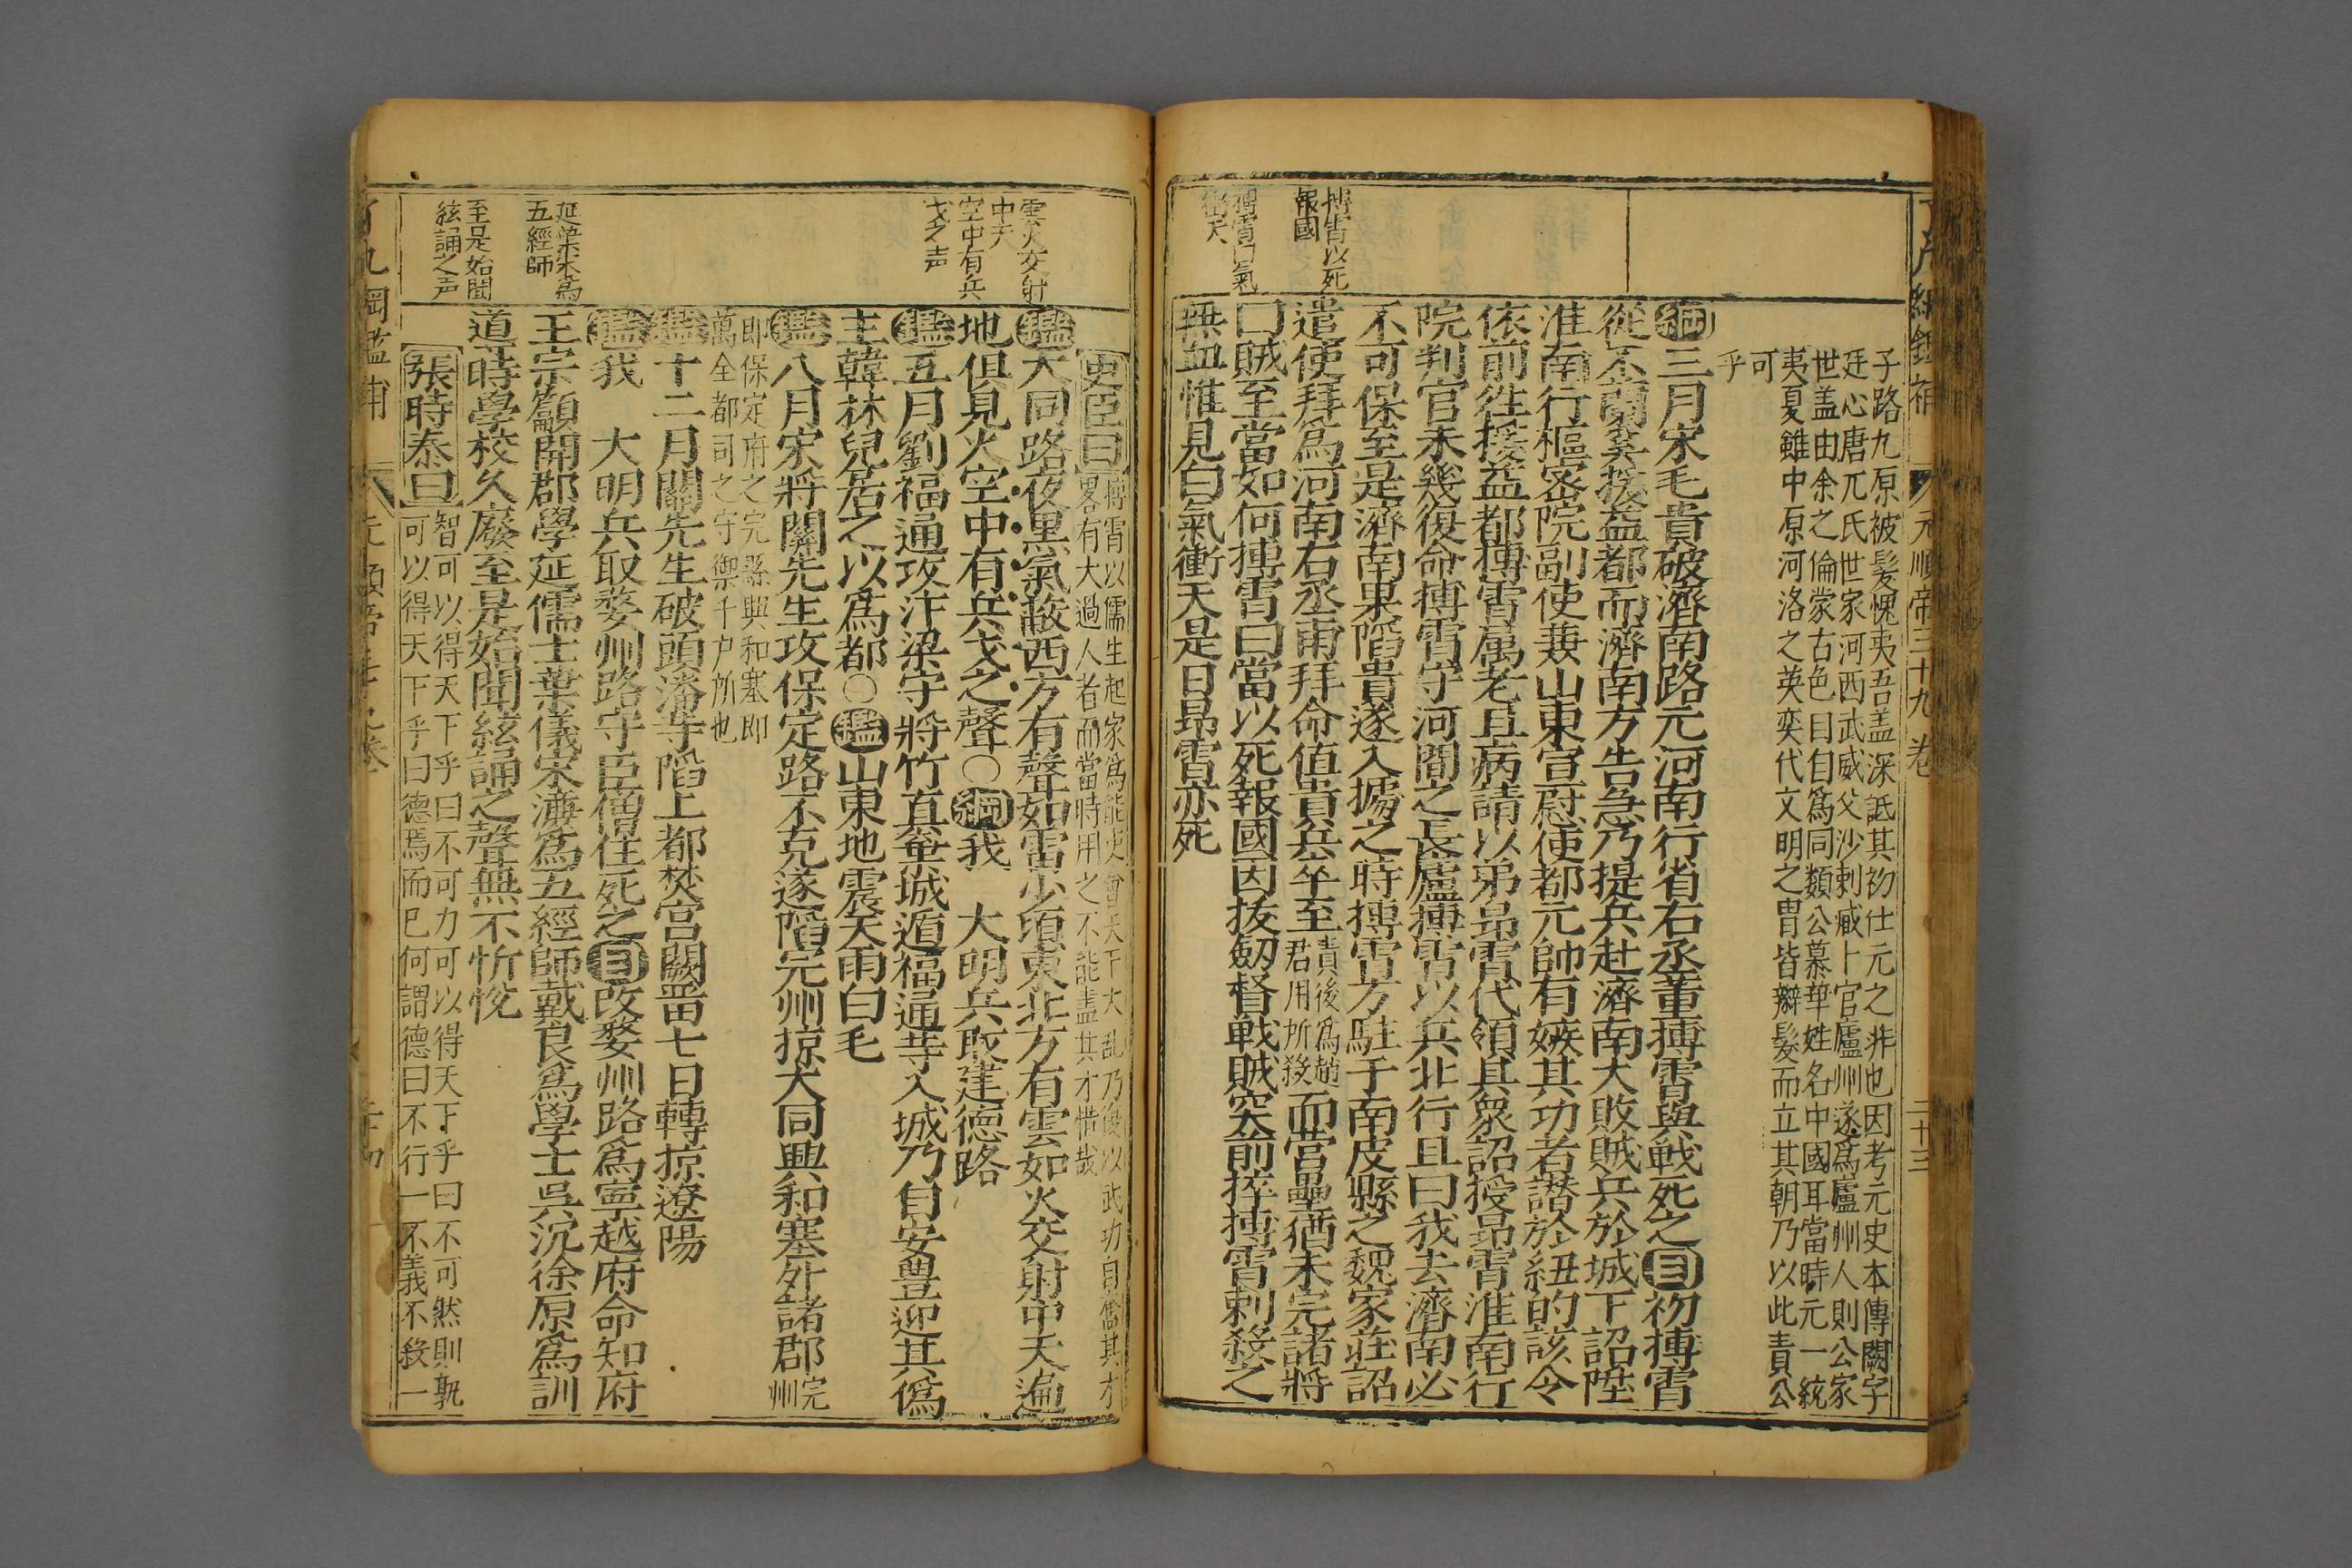 元順帝三十九卷
二十三
搏霄以死
報國
子路九原被髮愧夷吾盖深詆其初仕元之非也因考元史本傳闕字
廷心唐兀氏世家河西武威父沙剌臧卜官廬州遂爲廬州人則公家
世盖由余之倫蒙古色目自爲同類公慕華姓名中國耳當時元一統
夷夏雖中原河洛之英奕代文明之冑皆辮髮而立其朝乃以此責公
可
乎
綱三月宋毛貴破濟南路元河南行省右丞董搏霄與戰死之目初搏霄
從不蘭奚援益都而濟南方告急乃提兵赴濟南大敗賊兵於城下詔陞
淮南行樞密院副使兼山東宣慰使都元帥有嫉其功者譖於紐的該令
依前往援益都搏霄属老且病請以弟昻霄代領其衆詔授昻霄淮南行
院判官未幾復命搏霄守河間之長廬搏霄以兵北行且曰我去濟南必
不可保至是濟南果䧟貴遂入據之時搏霄方駐于南皮縣之魏家莊詔
遣使拜爲河南右丞甫拜命值貴兵卒至貴後爲趙君用所殺而營壘猶未完諸將
曰賊至當如何搏霄曰當以死報國因拔劒督戰賊突前捽搏霄刺殺之
無血惟見白氣衝天是日昻霄亦死
雲火交射
中天
空中有兵
戈之声
延葉宋爲
五經師
至是始聞
絃誦之声
史臣曰搏霄以儒生起家爲能吏會天下大乱乃復以武功自奮其才
畧有大過人者而當時用之不能盡其才惜哉
鑑大同路夜黒氣蔽西方有聲如雷少頃東北方有雲如火交射中天遍
地俱見火空中有兵戈之聲○綱我 大明兵取建德路
鑑五月劉福通攻汴梁守將竹真棄城遁福通等入城乃自安豊迎其僞
主韓林兒居之以爲都○鑑山東地震天雨白毛
鑑八月宋將關先生攻保定路不克遂䧟完州掠大同興和塞外諸郡完州
即保定府之完縣興和塞即
萬全都司之守禦千户所也
鑑十二月關先生破頭潘等䧟上都焚宫闕畱七日轉掠遼陽
鑑我 大明兵取婺州路守臣僧住死之目改婺州路爲寧越府命知府
王宗顯開郡學延儒士葉儀宋濂爲五經師戴良爲學士吳沉徐原爲訓
道時學校久廢至是始聞絃誦之聲無不忻悅
張時泰曰智可以得天下乎曰不可力可以得天下乎曰不可然則孰
可以得天下乎曰德焉而已何謂德曰不行一不義不殺一
了凡綱鑑補